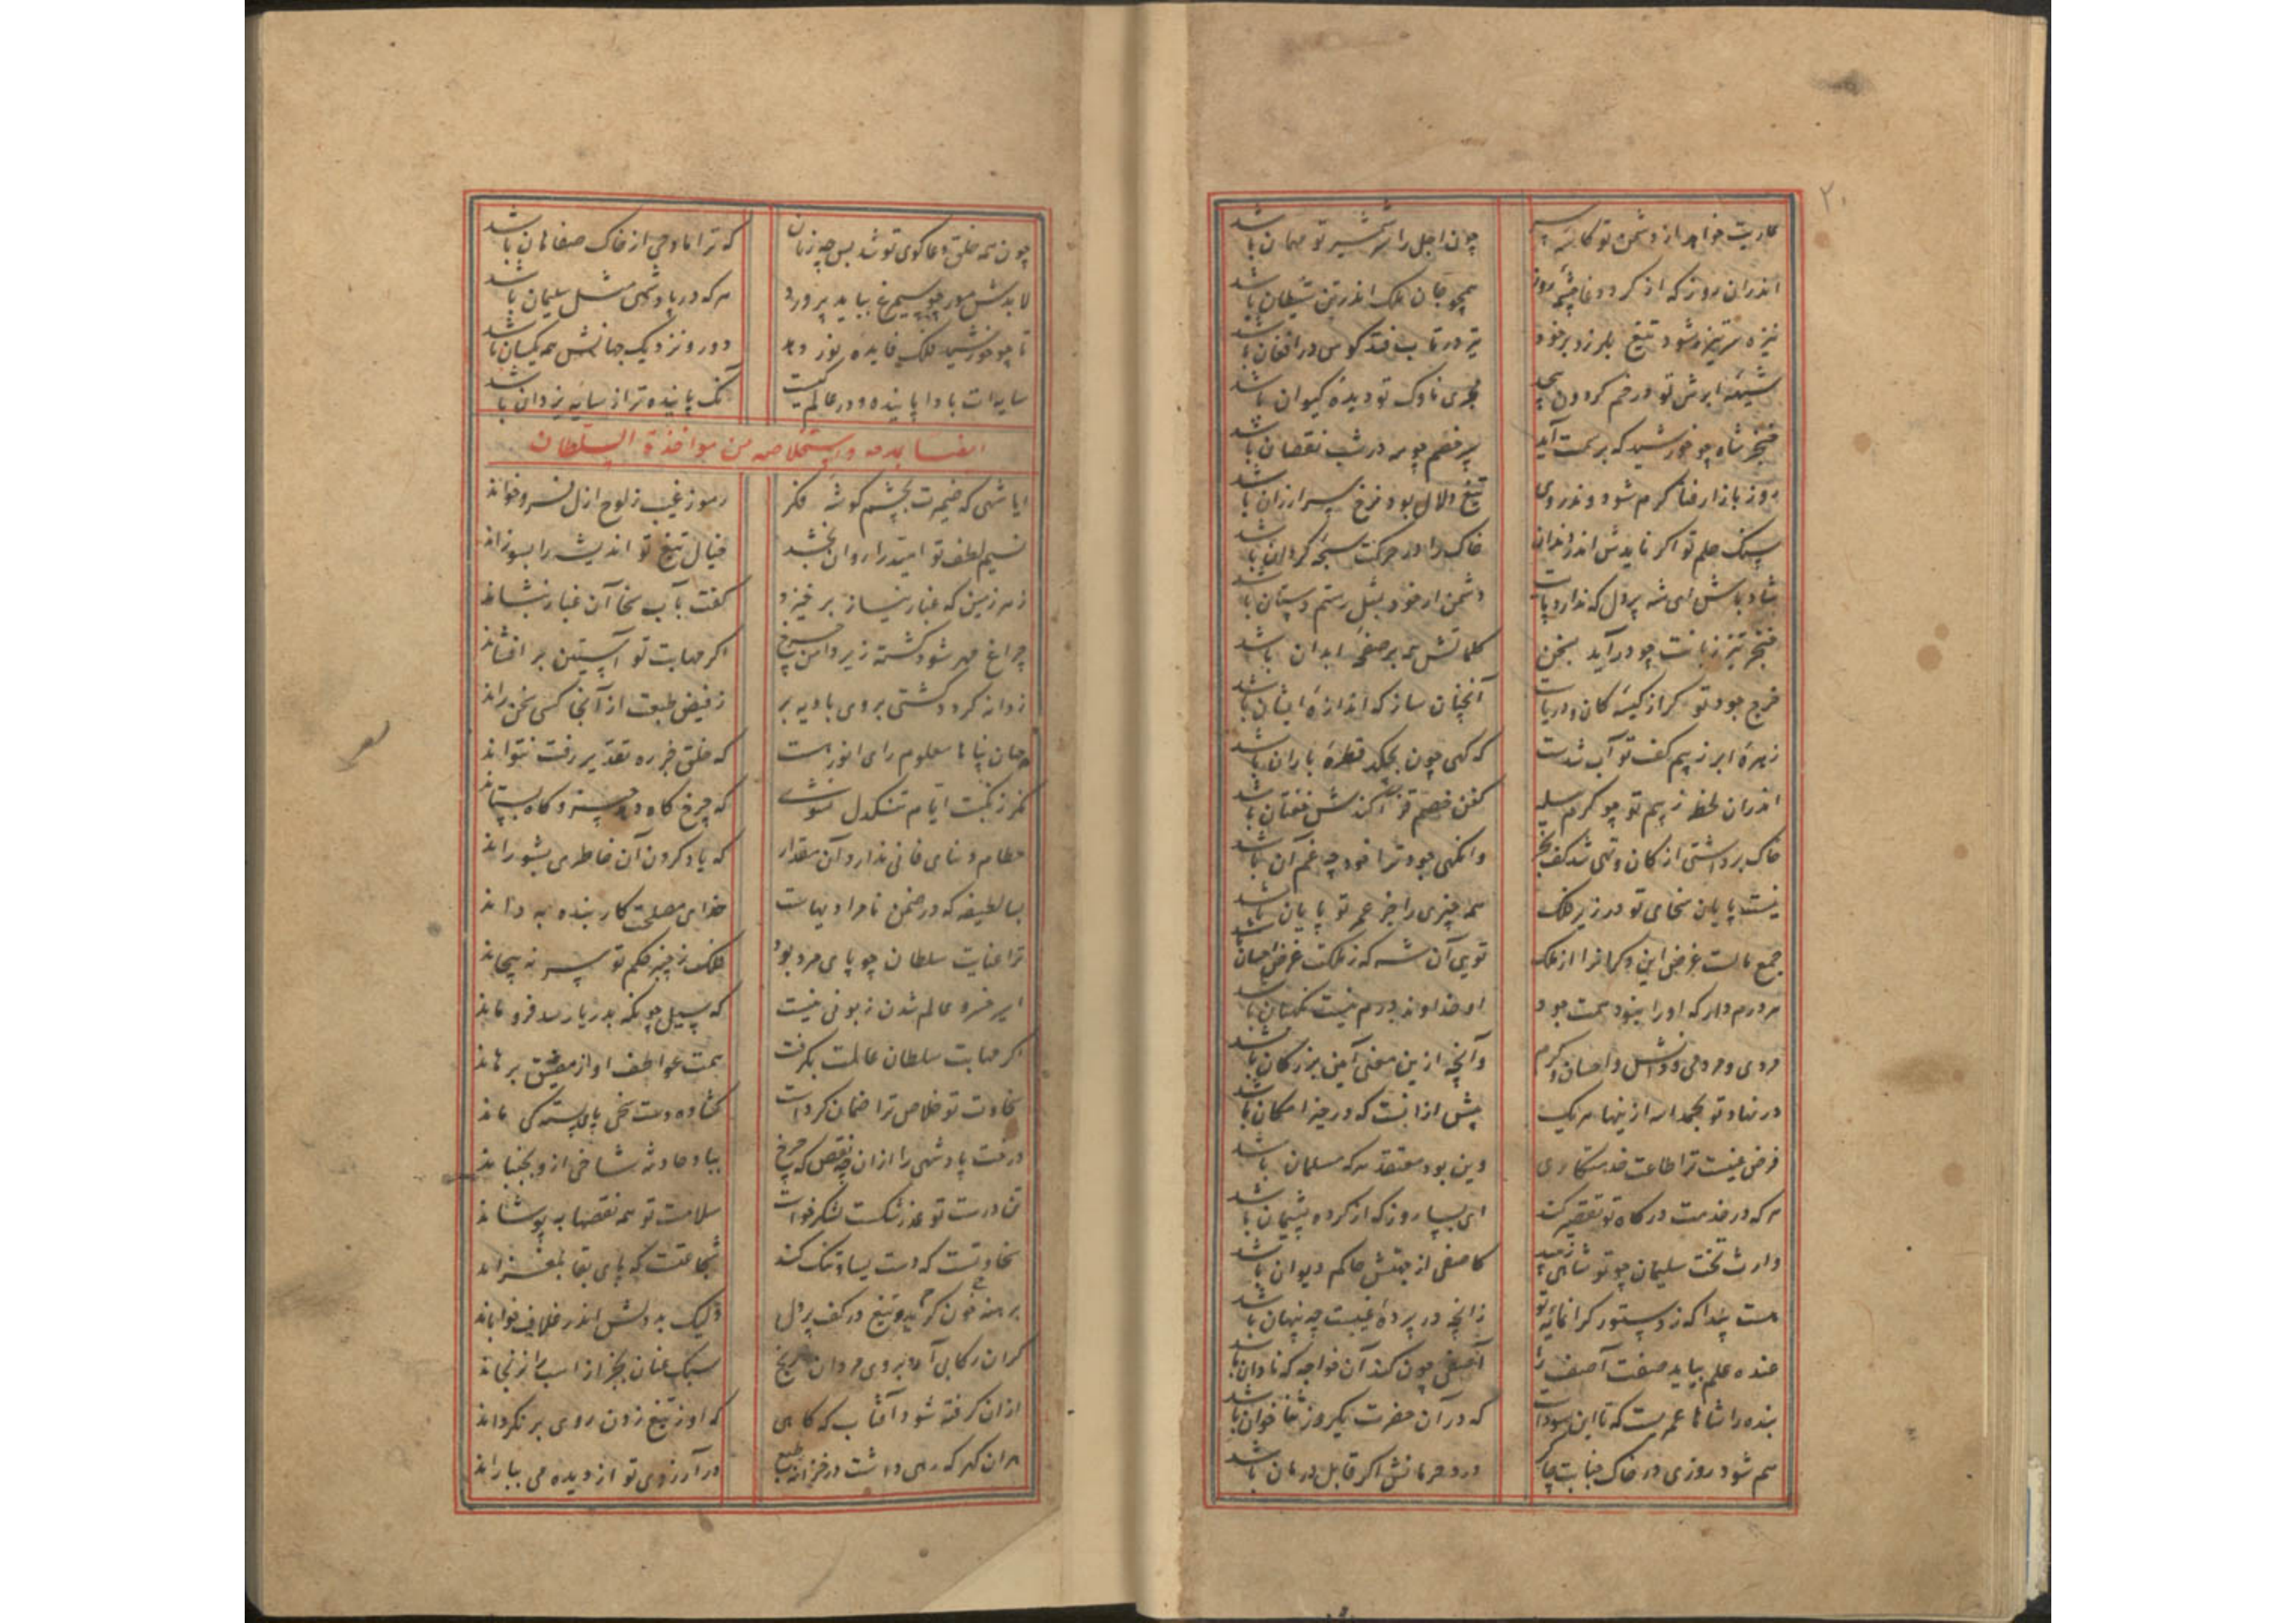 ۲۰
عاریت خواهد از دشمن تو کاسه سر
چون اجل را سر شمشیر تو مهمان باشد
اندران روز که از کرد وغا چشمه روز
همچو جان ملک اندر تن شیطان باشد
نیزه سرتیز شود تیغ بلرزد بر خود
تیر در تاب فتد کوس در افغان باشد
شیهه ابرش تو در خم کردون پیچد
مجری ناوک تو دیده کیوان باشد
خنجر شاه چو خورشید که بر سمت آید
بر خصم چو مه در شب نقصان باشد
روز بازار فنا کرم شود وندروی
تیغ دلال بود نرخ سر ارزان باشد
سنک حلم تو اکر نایدش اندر دندان
خاک را در حرکت سبحه کردان باشد
شاد باش ای شه پردل که ندارد پایت
دشمن ار خود بمثل رستم دستان باشد
خنجر تیز زبانت چو درآید بسخن
کلماتش همه بر صفحه ابدان باشد
خرج جود تو کر از کیسه کان و دریاست
آنچنان ساز که اندازه ایشان باشد
زهره ابر ز بیم کف تو آب شدست
که کهی چون بچکد قطره باران باشد
اندران لحظه ز بیم تو چو کرم پیله
کفن خصم قزاکند ش خفتان باشد
خاک برداشتی از کان و تهی شد کف بحر
وانکهی جود ترا خود چه غم آن باشد
نیست پایان سخای تو و در زیر فلک
همه چیزی را جز عمر تو پایان باشد
جمع مالست غرض این و کرانرا از ملک
تویی آن شه که ز ملکت غرض احسان باشد
هر درم دار که او را نبود همت جود
او خداوند درم نیست نکهبان باشد
مردی و مردمی و دانش و احسان و کرم
وآنچه از این معنی آیین بزرکان باشد
در نهاد تو بحمدالله ازینها هر یک
بیش از آنست که در حیز امکان باشد
فرض عینست ترا طاعت خدمتکاری
وین بود معتقد هر که مسلمان باشد
هر که در خدمت درکاه تو تقصیر کند
ای بسا روز که از کرده پشیمان باشد
وارث تخت سلیمان چو تو شاهی زیبد
کاصفی از جهتش حاکم دیوان باشد
هست پیدا که ز دستور کرانمایه تو
زانچه در پرده غیبست چه پنهان باشد
عنده علم بباید صفت آصف را
آصفی چون کند آن خواجه که نادان باشد
بنده را شاها عمریست که تا این سوداست
که در آن حضرت یکروز ثنا خوان باشد
هم شود روزی در خاک جنابت چاکر
درد حرمانش اکر قابل درمان باشد
چون همه خلق دعاکوی تو شد بس چه زیان
که ترا مادحی از خاک صفاهان باشد
لابدش مور چو سیمرغ بباید پرورد
هر که در پادشهی مثل سلیمان باشد
تا چو خورشید فلک فایده نور دهد
دور و نزدیک جهانش همه یکسان باشد
سایه ات بادا پاینده و در عالم کیست
آنک پاینده تر از سایه یزدان باشد
ایضا یمدحه و استخلاصه من مواخذة السلطان
ایا شهی که ضمیرت بچشم کوشه فکر
رموز غیب ز لوح ازل فرو خواند
نسیم لطف تو امید را روان بخشد
خیال تیغ تو اندیشه را بسوزاند
ز هر زمین که غبار نیاز برخیزد
کفت بآب سخا آن غبار بنشاند
چراغ مهر شود کشته زیر دامن چرخ
اکر مهابت تو آستین برافشاند
روانه کردد کشتی بروی بادیه بر
ز فیض طبعت از آنجا کسی سخن راند
جهان پناها معلوم رای انورست
که خلق جز ره تقدیر رفت نتواند
مکر ز نکبت ایام تنکدل نشوی
که چرخ کاه دهد چیز و کاه بستاند
حطام دنیای فانی ندارد آن مقدار
که یاد کردن آن خاطری بشوراند
بسا لطیفه که در ضمن نامرادیهاست
خدای مصلحت کار بنده به داند
ترا عنایت سلطان چو پای مرد بود
فلک ز چنبر حکم تو سر نپیچاند
اسیر خسرو عالم شدن زبونی نیست
که سیل چونکه بدریا رسد فرو ماند
اکر مهابت سلطان عالمت بکرفت
همت عواطف او از مضیق برهاند
سخاوت تو خلاص ترا ضمان کردست
کشاده دست سخی پای بسته کی ماند
درخت پادشهی را ازان چه نقص که چرخ
بباد حادثه شاخی ازو بجنباند
تن درست تو عذر شکست لشکر خواست
سلامت تو همه نقصها بپوشاند
سخاوتست که دست یسار تنک کند
شجاعتست که پای بقا بلغزاند
برهنه خون کرید تیغ در کف پردل
ولیک بددلش اندر غلاف خواباند
کران رکابی آرد بروی مردان رنج
سبک عنان بجز از اسب را نرنجاند
ازان کرفته شود آفتاب که کاهی
که او ز تیغ زدن روی برنکرداند
هران کهر که رهی داشت در خزانه طبع
در آرزوی تو از دیده می بباراند